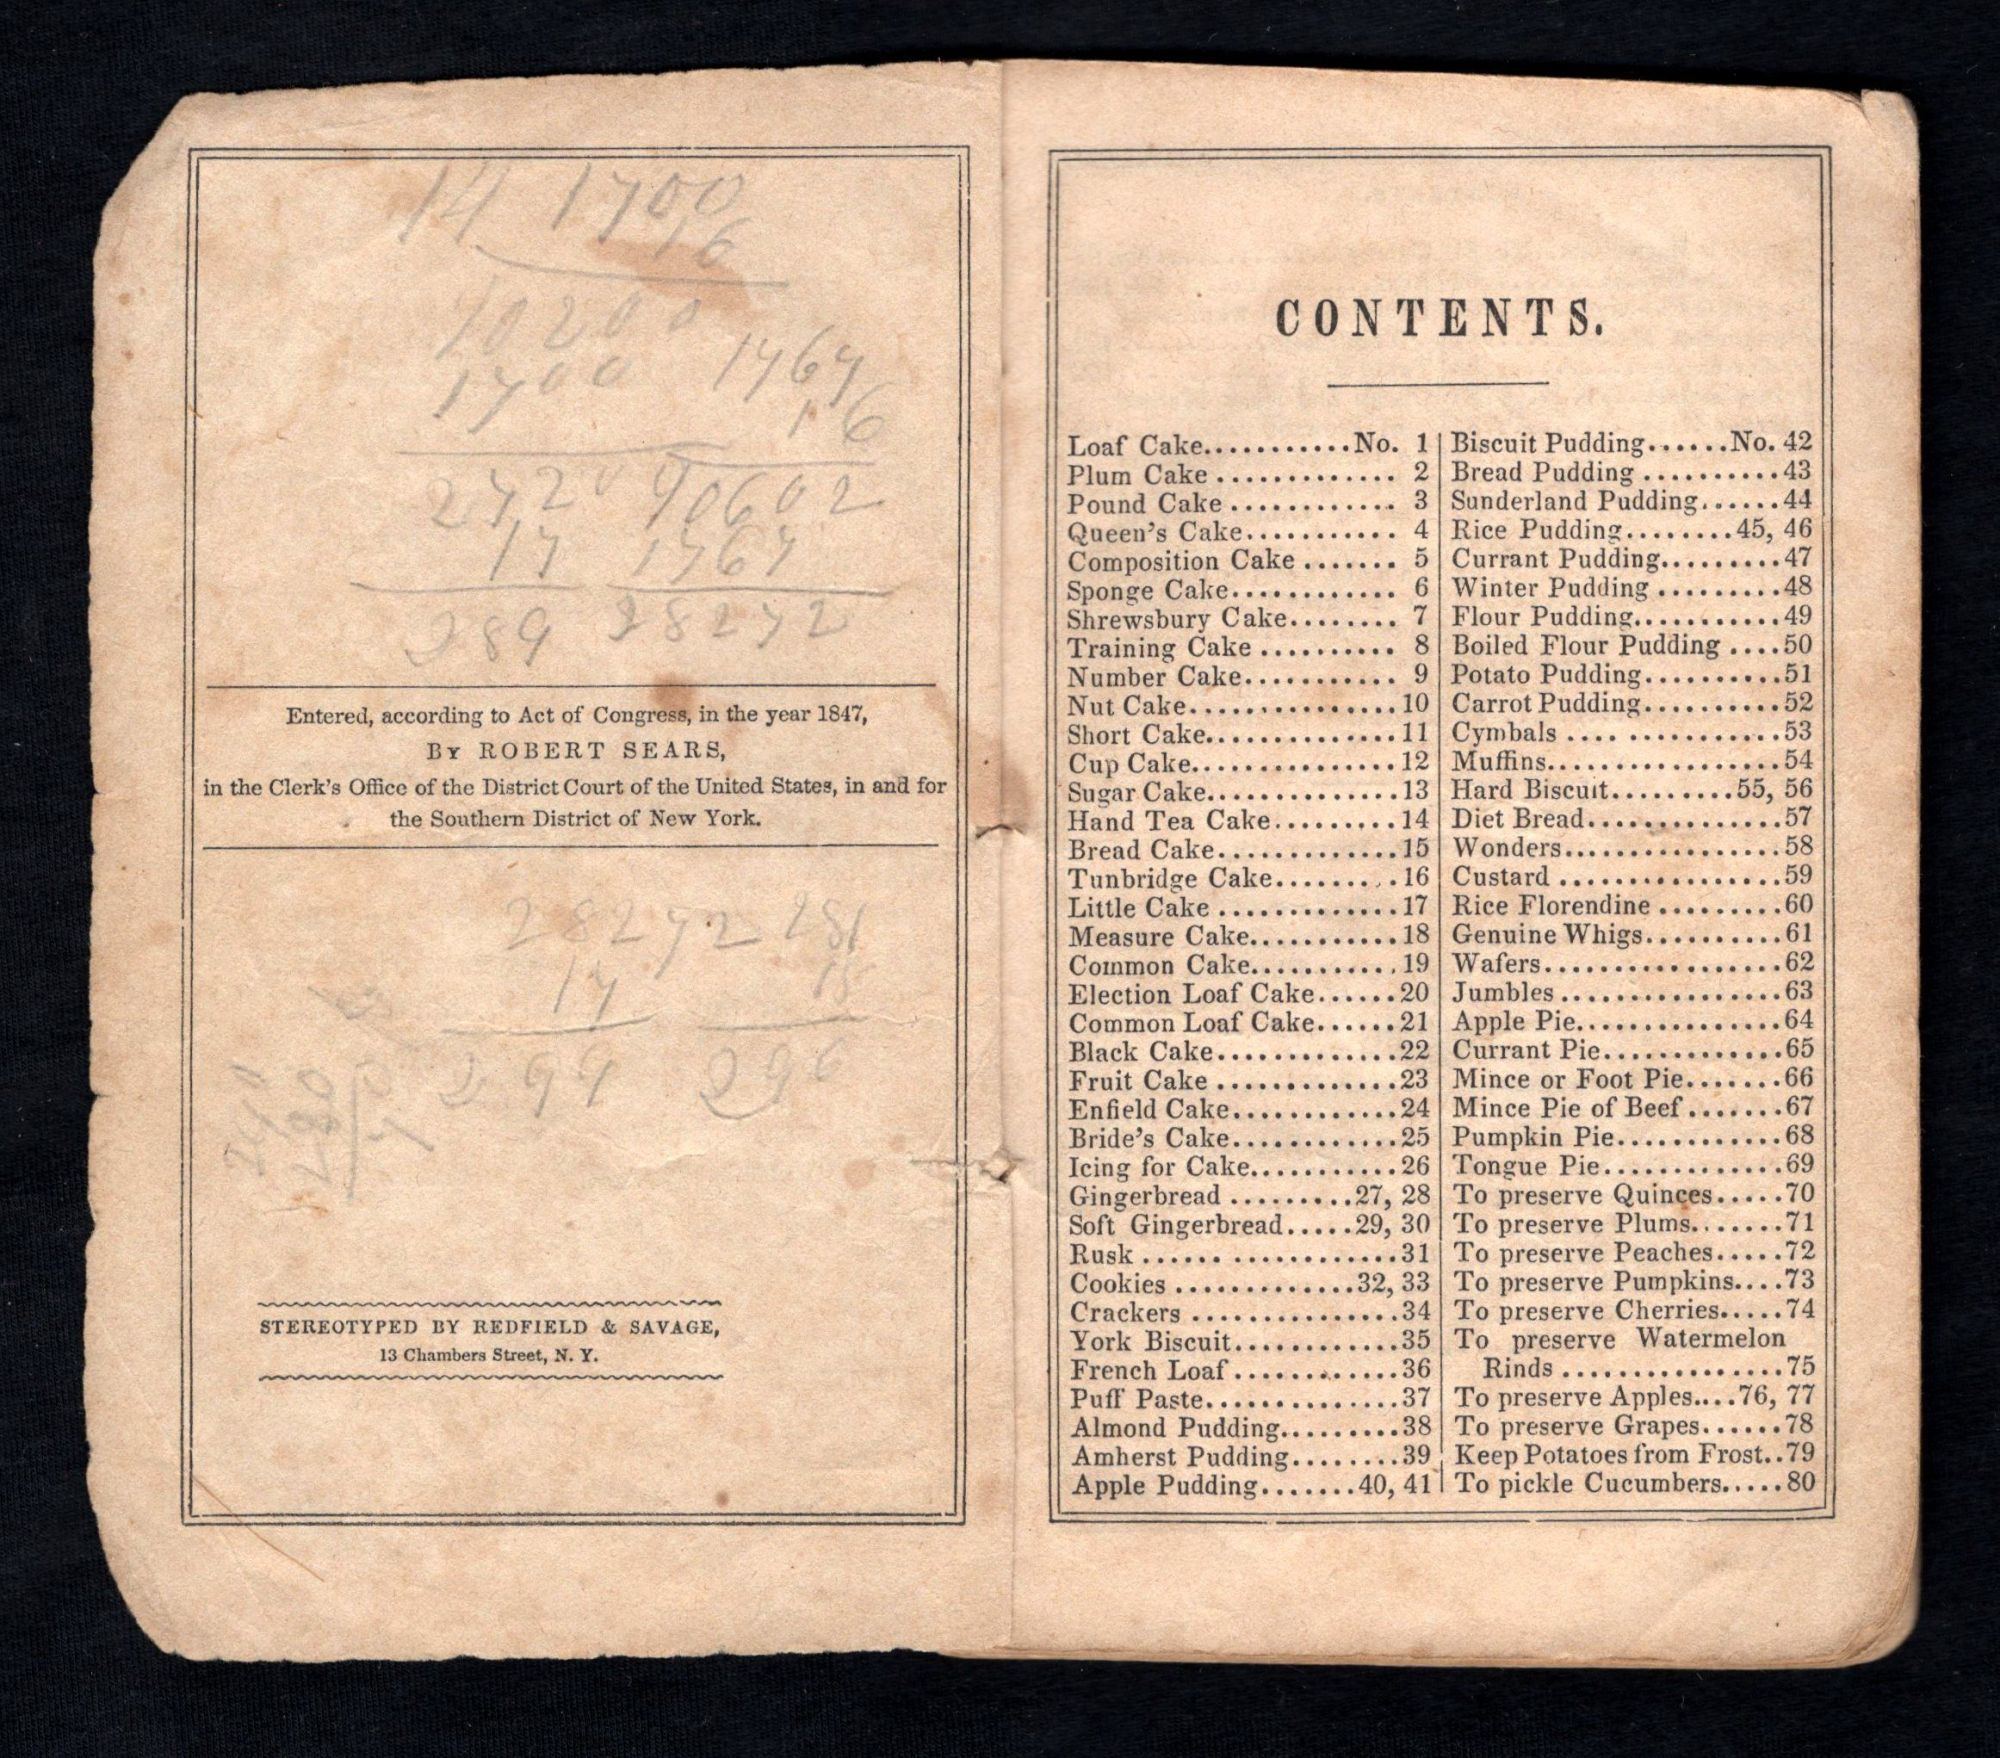 14 1700
16
10200
1700 1767
16
2720 10602
17 1767
289 28272
Entered, according to Act of Congress, in the year 1847,
BY ROBERT SEARS,
in the Clerk's Office of the District Court of the United States, in and for
the Southern District of New York.
28272 281
17 15
299 296
STEREOTYPED BY REDFIELD & SAVAGE,
13 Chambers Street, N. Y.
CONTENTS.
Loaf Cake...........No. 1
Plum Cake ............. 2
Pound Cake ............ 3
Queen's Cake........... 4
Composition Cake ....... 5
Sponge Cake............ 6
Shrewsbury Cake........ 7
Training Cake .......... 8
Number Cake........... 9
Nut Cake...............10
Short Cake..............11
Cup Cake...............12
Sugar Cake..............13
Hand Tea Cake.........14
Bread Cake.............15
Tunbridge Cake.........16
Little Cake .............17
Measure Cake...........18
Common Cake...........19
Election Loaf Cake......20
Common Loaf Cake......21
Black Cake.............22
Fruit Cake .............23
Enfield Cake............24
Bride's Cake............25
Icing for Cake...........26
Gingerbread .........27, 28
Soft Gingerbread.....29, 30
Rusk ...... ............31
Cookies .............32, 33
Crackers ...............34
York Biscuit............35
French Loaf ............36
Puff Paste..............37
Almond Pudding.........38
Amherst Pudding........39
Apple Pudding.......40, 41
Biscuit Pudding......No. 42
Bread Pudding ..........43
Sunderland Pudding......44
Rice Pudding........45, 46
Currant Pudding.........47
Winter Pudding .........48
Flour Pudding...........49
Boiled Flour Pudding ....50
Potato Pudding..........51
Carrot Pudding..........52
Cymbals .... ...........53
Muffins.................54
Hard Biscuit.........55, 56
Diet Bread..............57
Wonders................58
Custard ................59
Rice Florendine .........60
Genuine Whigs..........61
Wafers.................62
Jumbles................63
Apple Pie...............64
Currant Pie.............65
Mince or Foot Pie.......66
Mince Pie of Beef.......67
Pumpkin Pie............68
Tongue Pie.............69
To preserve Quinces.....70
To preserve Plums.......71
To preserve Peaches.....72
To preserve Pumpkins....73
To preserve Cherries.....74
To preserve Watermelon
Rinds ................75
To preserve Apples....76, 77
To preserve Grapes......78
Keep Potatoes from Frost..79
To pickle Cucumbers.....80